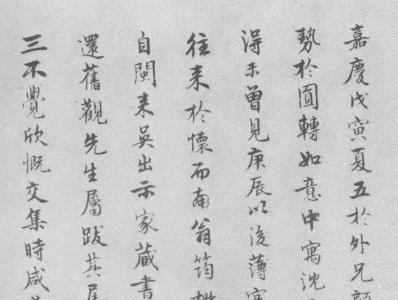 嘉慶戊寅夏五於外兄顏
勢於圓轉如意中寓沈
得未曾見庚辰以後薄宦
往来於懷而南翁筠樵
自閩来吳出示家藏書
還舊觀先生屬跋其尾
三不覺欣慨交集時咸